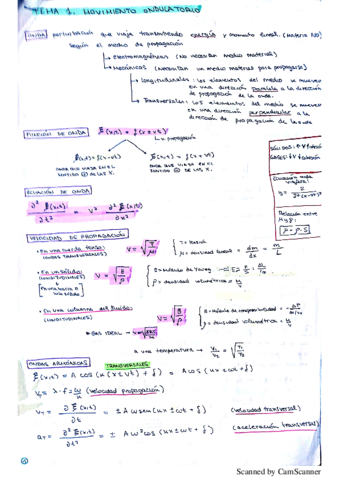 TEMA 1. MOVIMIENTO ONDULATORIO
ONDA: perturbación que viaja transmitiendo energía y momento lineal. (Materia NO)
Según el medio de propagación
→ electromagnéticas (No necesitan medio material)
→ Mecánicas (Necesitan un medio material para propagarse)
→ longitudinales: los elementos del medio se mueven
en una dirección paralela a la dirección
de propagación de la onda.
→ Transversales: los elementos del medio se mueven
en una dirección perpendicular a la
dirección de propagación de la onda
FUNCIÓN DE ONDA ξ(x,t) = f(x ± vt)
v propagación
ξ(x,t) = f(x-vt)
ξ(x,t) = f(x+vt)
ONDA QUE VIAJA EN EL
SENTIDO ⊕ DE LAS X.
ONDA QUE VIAJA EN EL
SENTIDO ⊖ DE LAS X.
ECUACIÓN DE ONDA
∂²ξ(x,t)/∂t² = v² ∂²ξ(x,t)/∂x²
Relación entre
VELOCIDAD DE PROPAGACIÓN
• En una cuerda tensa:
(ONDAS TRANSVERSALES)
v = √(T/μ)
T = tensión
μ = densidad lineal = dm/dx = m/L
• En un sólido:
(LONGITUDINALES)
v = √(B/ρ)
B = Módulo de Young
ρ = densidad volumétrica = m/V
• En una columna de fluido:
(LONGITUDINALES)
v = √(B/ρ)
B = Módulo de compresibilidad
ρ = densidad volumétrica = m/V
GAS IDEAL →
a una temperatura → v₁/v₂ = √(T₁/T₂)
ONDAS ARMÓNICAS TRANSVERSALES
ξ(x,t) = A cos (k(x ± vt) + δ) = A cos (kx ± ωt + δ)
vp = λ·f = ω/k (velocidad propagación)
vT = ∂ξ(x,t)/∂t = ± A ω sen (kx ± ωt + δ) (velocidad transversal)
aT = ∂²ξ(x,t)/∂t² = ± A ω² cos (kx ± ωt + δ) (aceleración transversal)
Scanned by CamScanner